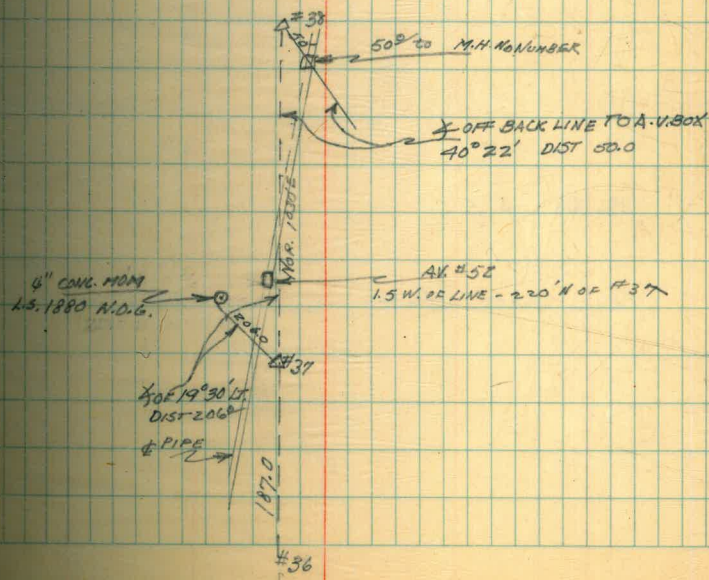 #38
50
50º to M.H. NO NUMBER
∠ OFF BACK LINE TO A.V. BOX
40° 22' DIST 50.0
NOR. 1030'E
4" CONC. MOM
L.S. 1880 N.O.G.
AV. #52
1.5 W. OF LINE - 220' N OF #37
206.0
#37
∠ OF 19°30' LT.
DIST 206º
℄ PIPE
187.0
#36